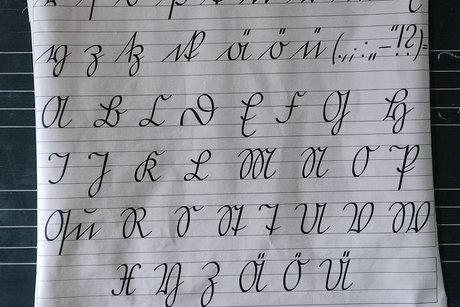 y z tz ä ö ü (.,;:„–“!?)=
A B C D E F G H
I J K L M N O P
Qu R S St T U V W
X Y Z Ä Ö Ü